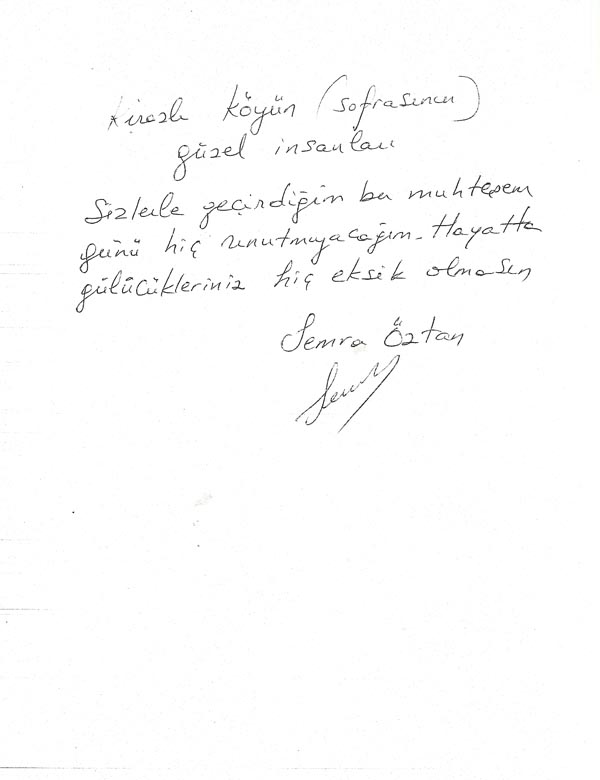 Kirazlı Köyün (sofrasının)
güzel insanları
Sizlerle geçirdiğim bu muhteşem
günü hiç unutmıyacağım. Hayatta
gülücükleriniz hiç eksik olmasın
Semra Öztan